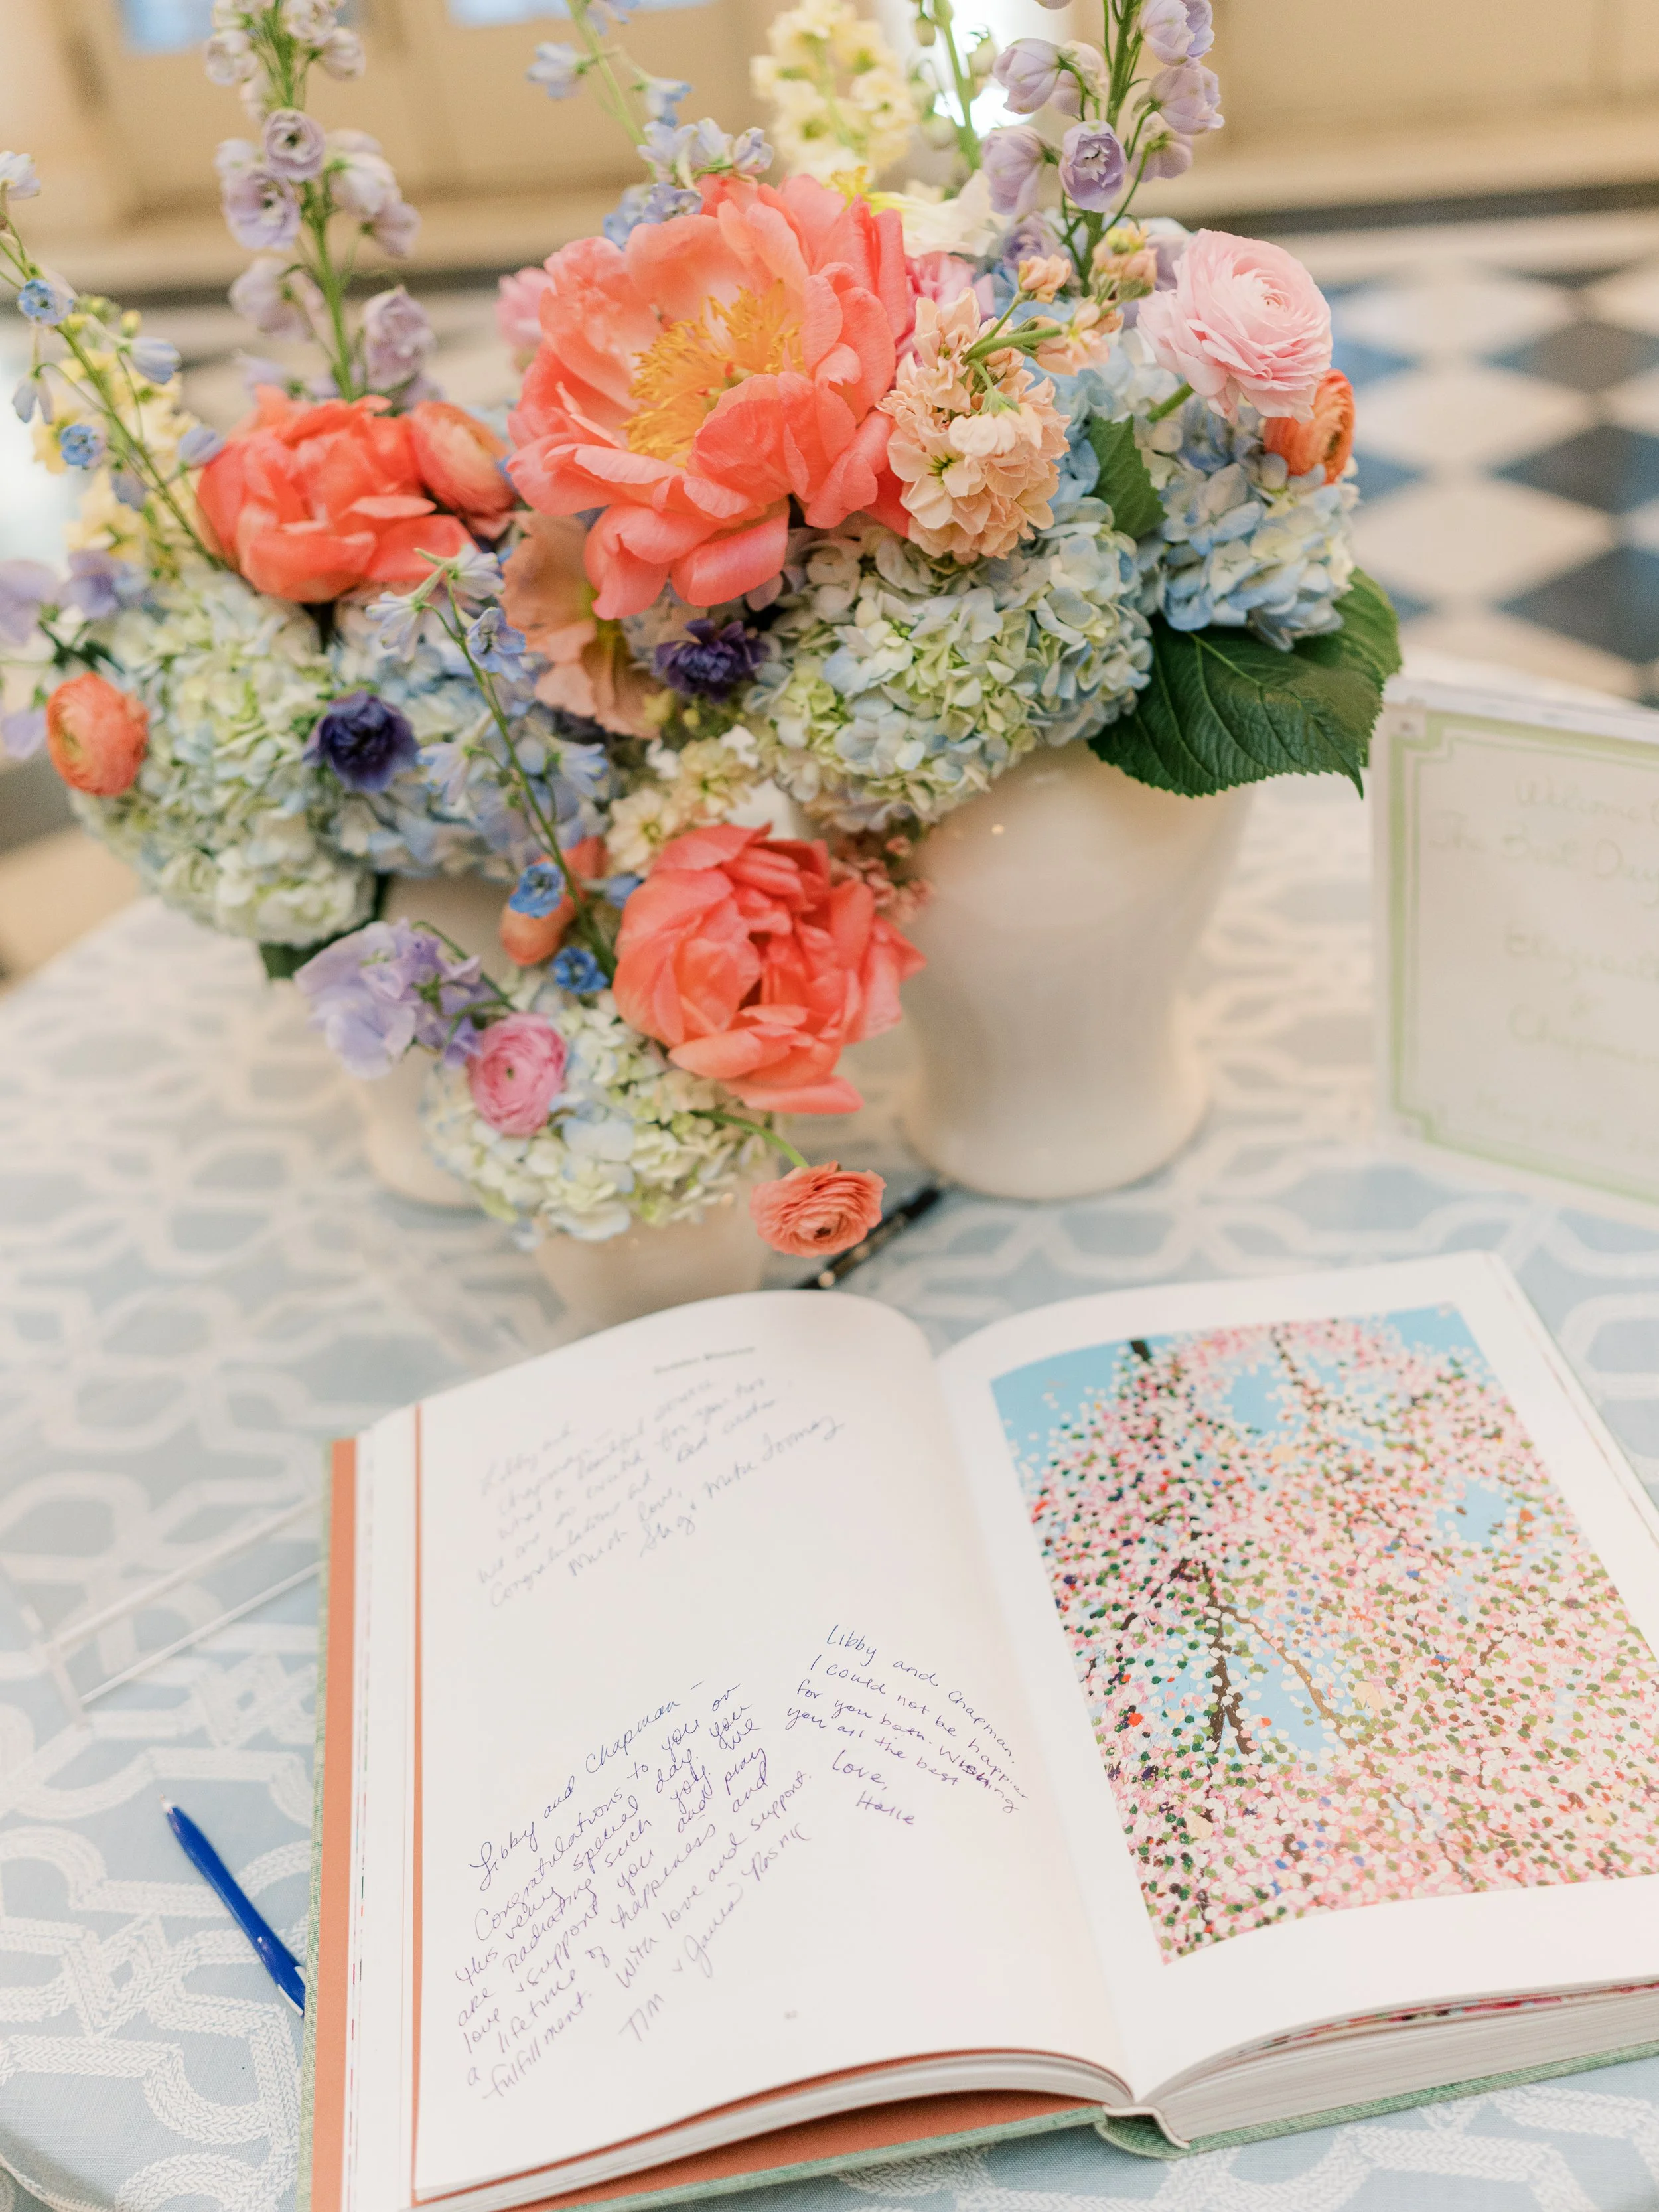 Libby and
Chapman –
What a beautiful
we are so excited for you two
Congratulations and
Much love,
Libby and Chapman –
Congratulations to you on
this very special day. You
are radiating such joy. We
love & support you and pray
a lifetime of happiness and
fulfillment. With love and support.
Tim
& James
Libby and Chapman.
I could not be happier
for you both. Wishing
you all the best
Love,
Halle
Welcome
The Best Day
&
Chapman